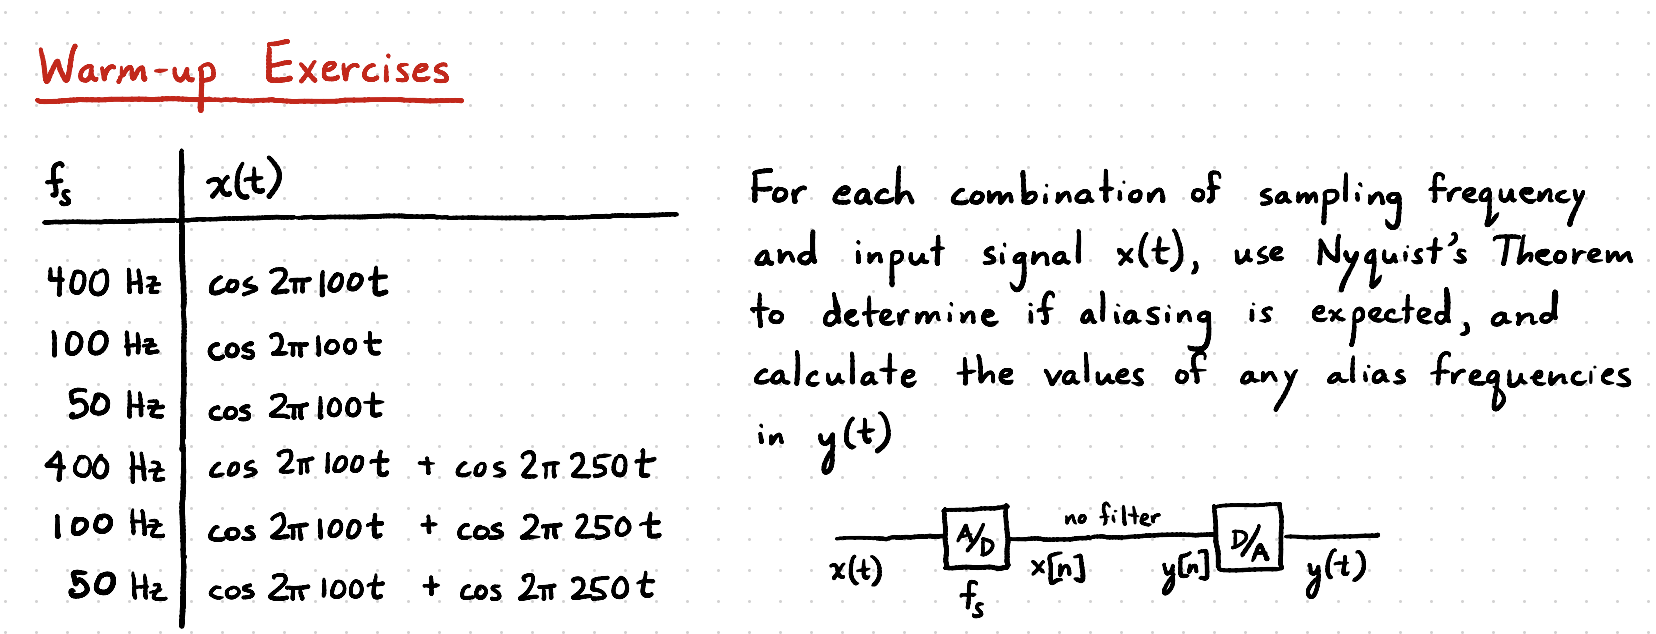 Warm-up Exercises
fₛ x(t)
400 Hz cos 2π100t
100 Hz cos 2π100t
50 Hz cos 2π100t
400 Hz cos 2π100t + cos 2π250t
100 Hz cos 2π100t + cos 2π250t
50 Hz cos 2π100t + cos 2π250t
For each combination of sampling frequency
and input signal x(t), use Nyquist's Theorem
to determine if aliasing is expected, and
calculate the values of any alias frequencies
in y(t)
A/D no filter D/A
x(t) x[n] y[n] y(t)
fₛ